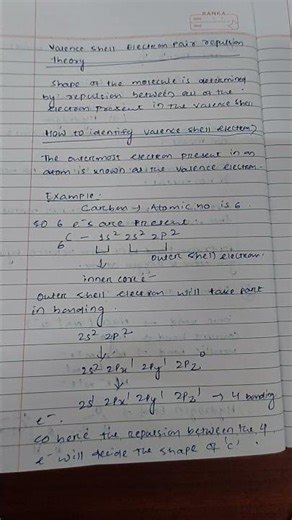 RANKA
Valence shell Electron Pair repulsion
theory
shape of the molecule is determined
by repulsion between all of the
electron present in the valence shell
How to identify valence shell electron?
The outermost electron present in an
atom is known as the valence electron.
Example:
Carbon → Atomic no. is 6.
so 6 e⁻s are present.
₆C - 1s² 2s² 2p²
outer shell electron.
inner core e⁻
outer shell electron will take part
in bonding.
2s² 2p²
2s² 2px¹ 2py¹ 2pz⁰
2s¹ 2px¹ 2py¹ 2pz¹ → 4 bonding
e⁻.
so here the repulsion between the 4
e⁻ will decide the shape of 'c'.